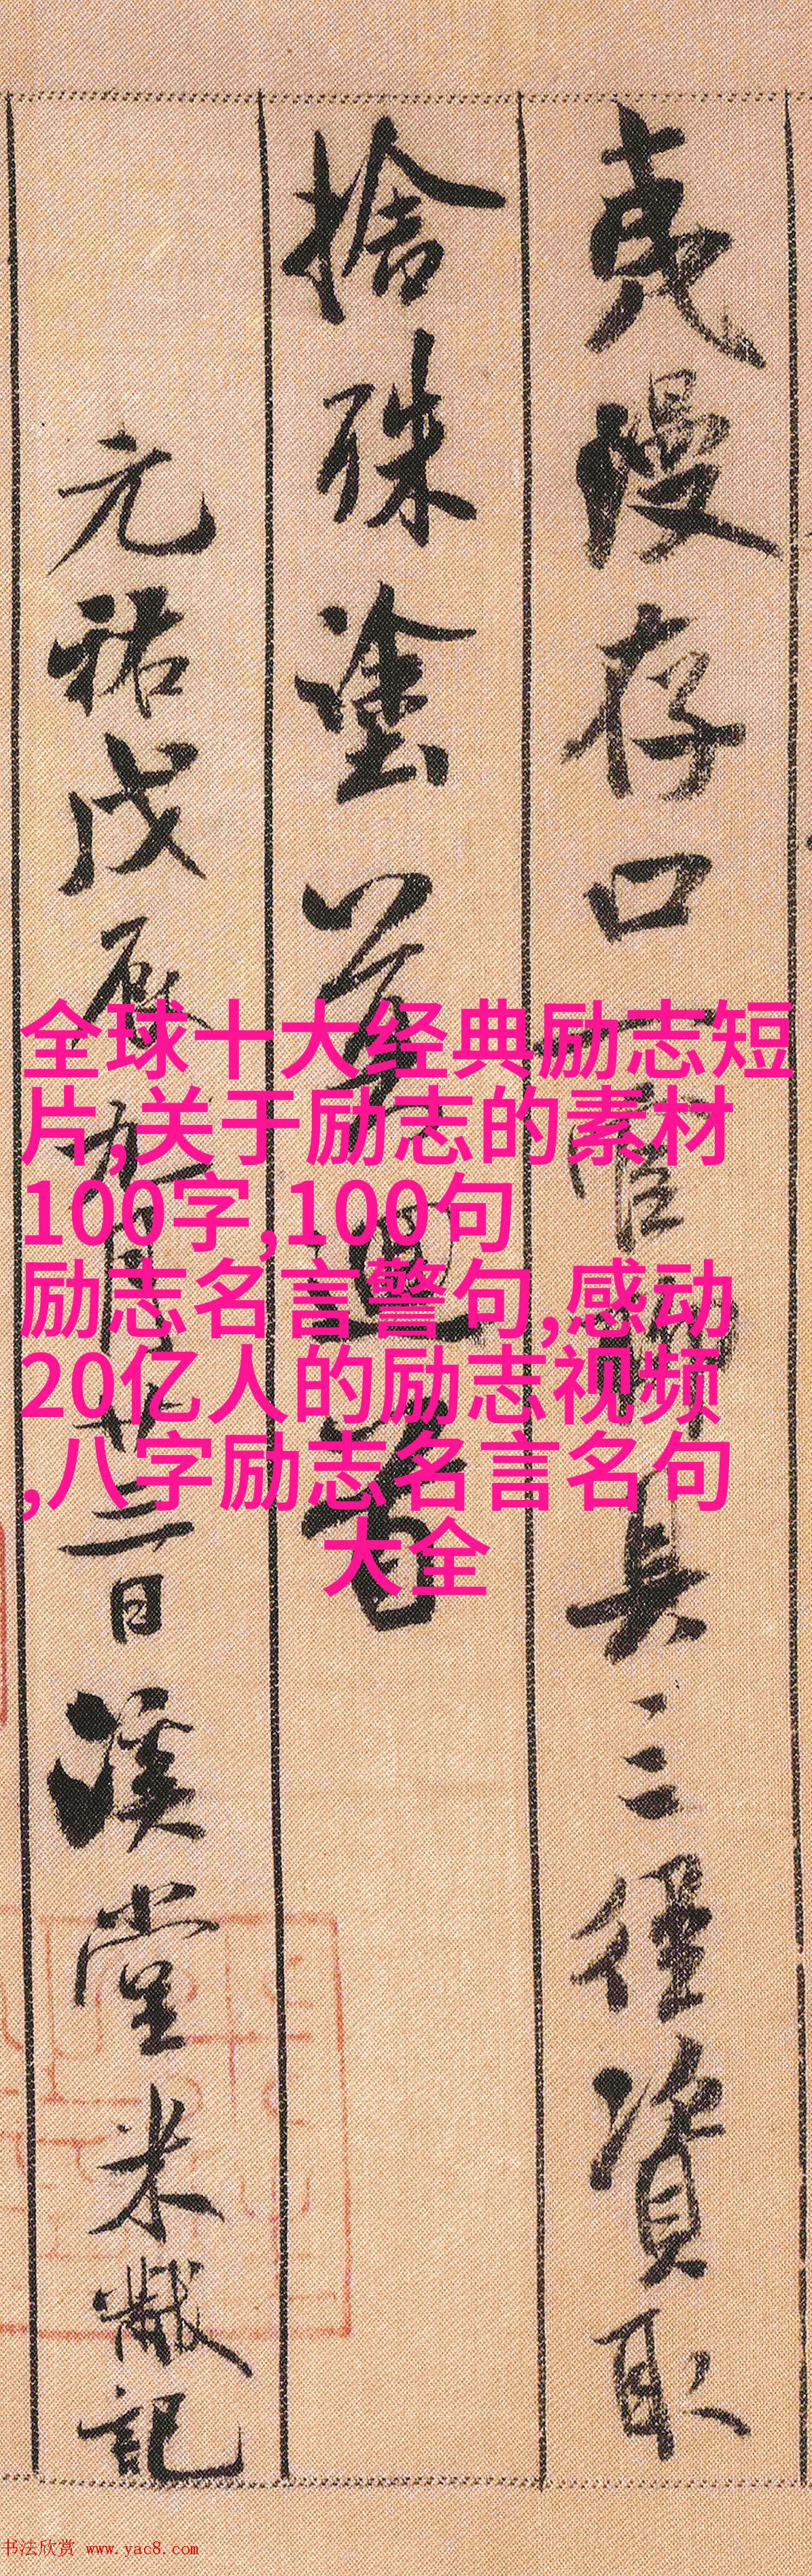 夷漫存口一官聊具三徑資取
捨殊塗莫迴首
元祐戊辰九月廿三日溪堂米黻記
全球十大经典励志短
片,关于励志的素材
100字,100句
励志名言警句,感动
20亿人的励志视频
,八字励志名言名句
大全
书法欣赏 www.yac8.com